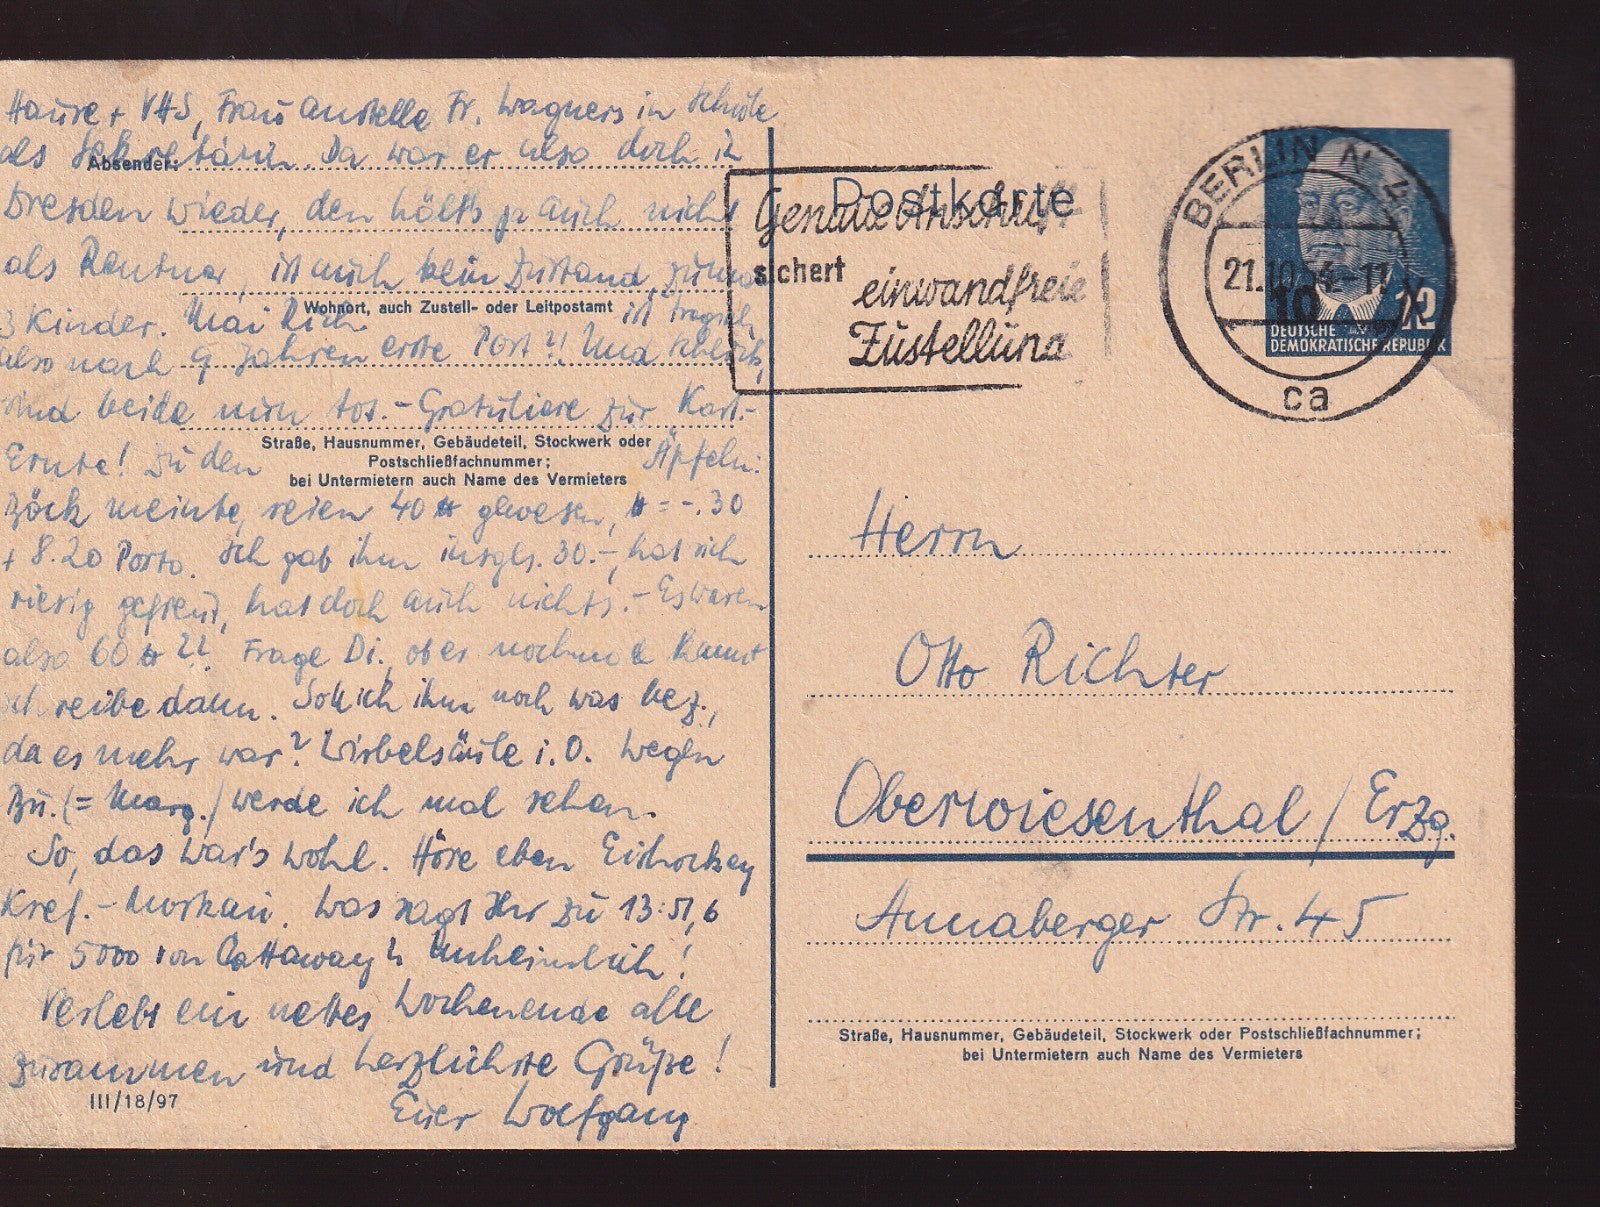 Hause + VHS, Frau anstelle Fr. Wagners in Schule
als Sekretärin. Da war er also doch in
Absender:
Dresden wieder, den hält's ja auch nicht
als Rentner, ist auch kein Zustand, zumal
Wohnort, auch Zustell- oder Leitpostamt
3 Kinder. Mai ist tragisch
also nach 9 Jahren erste Post?! Und
sind beide nun tot. - Gratuliere zur Kart.-
Straße, Hausnummer, Gebäudeteil, Stockwerk oder
Postschließfachnummer;
bei Untermietern auch Name des Vermieters
Ernte! Zu den Äpfeln:
Böck meinte, seien 40 ℔ gewesen, ℔ = -.30
+ 8.20 Porto. Ich gab ihm insges. 30.-, hat sich
riesig gefreut, hat doch auch nichts. - Es waren
also 60 ℔ ?! Frage Di., ob er nochmal kommt
schreibe dann. Soll ich ihm noch was bez.,
da es mehr war? Wirbelsäule i.O. Wegen
Bu. (= Marg.) werde ich mal sehen.
So, das war's wohl. Höre eben Eishockey
Kref. - Moskau. Was sagt Ihr zu 13:51,6
für 5000 von Chattaway? Unheimlich!
Verlebt ein nettes Wochenende alle
zusammen und herzlichste Grüße!
Euer Wolfgang
III/18/97
Postkarte
Genaue Anschrift
sichert
einwandfreie
Zustellung
BERLIN N 4
21.10.54-11
ca
10 X
12
DEUTSCHE
DEMOKRATISCHE REPUBLIK
Herrn
Otto Richter
Oberwiesenthal / Erzg.
Annaberger Str. 45
Straße, Hausnummer, Gebäudeteil, Stockwerk oder Postschließfachnummer;
bei Untermietern auch Name des Vermieters